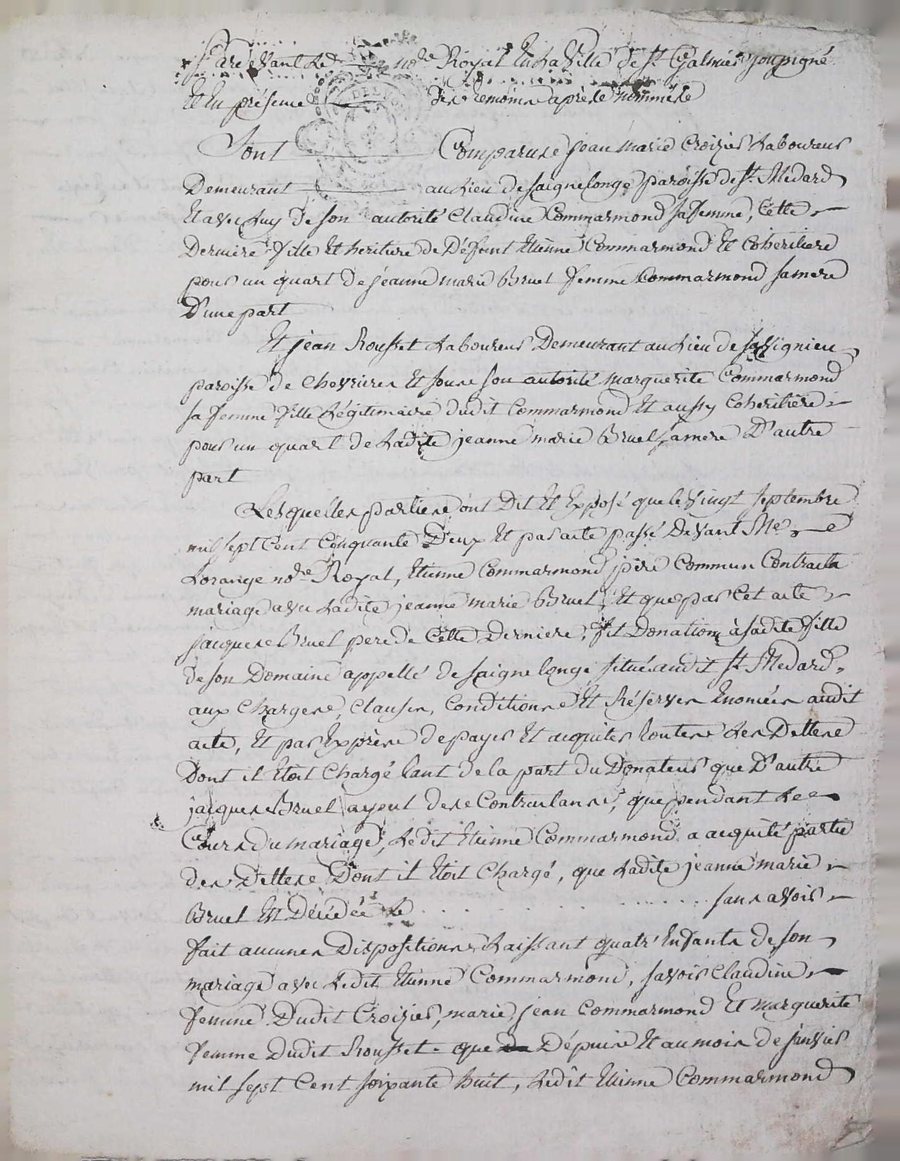 Pardevant le nore Royal en la Ville de st Galmier soussigné
Et En présence des temoins après nommés
Sont Comparus jean marie Croizier Laboureur
Demeurant au Lieu de saignelonge paroisse de st. Medard
Et avec luy de son autorité Claudine Commarmond sa femme, Cette
Derniere fille Et heritiere de Défunt Etienne Commarmond Et Coheritiere
pour un quart de jeanne marie Bruel femme Commarmond sa mere
D'une part
Et jean Rousset Laboureur Demeurant au Lieu de
paroisse de Chevrieres Et sous son autorité marguerite Commarmond
sa femme fille Légitimaire dudit Commarmond Et aussy Coheritiere
pour un quart de Ladite jeanne marie Bruel sa mere D'autre
part
Lesquelles parties ont Dit Et Exposé que le vingt septembre
mil sept Cent Cinquante Deux Et par acte passé Devant Me.
Lorange nore Royal, Etienne Commarmond père Commun Contracta
mariage avec Ladite jeanne marie Bruel, Et que par Cet acte
jacques Bruel pere de Cette Derniere, fit Donation à sadite fille
de son Domaine appellé de saigne longe situé audit st. Medard
aux Charges, Clauses, Conditions Et Réserves Enoncées audit
acte, Et par Exprès de payer Et acquiter toutes Les Dettes
Dont il Etoit Chargé tant de la part du Donateur que D'autre
jacques Bruel ayeul de se Contractante, que pendant Le
Cours Du mariage, Ledit Etienne Commarmond a acquité partie
des Dettes Dont il Etoit Chargé, que Ladite jeanne marie
Bruel Est Décédée Le . . . . . . . . sans avoir
fait aucunes Dispositions, Laissant quatr' Enfants de son
mariage avec Ledit Etienne Commarmond, savoir Claudine
femme Dudit Croizier, marie, jean Commarmond Et marguerite
femme Dudit Rousset. que Depuis Et au mois de janvier
mil sept Cent soixante huit, Ledit Etienne Commarmond